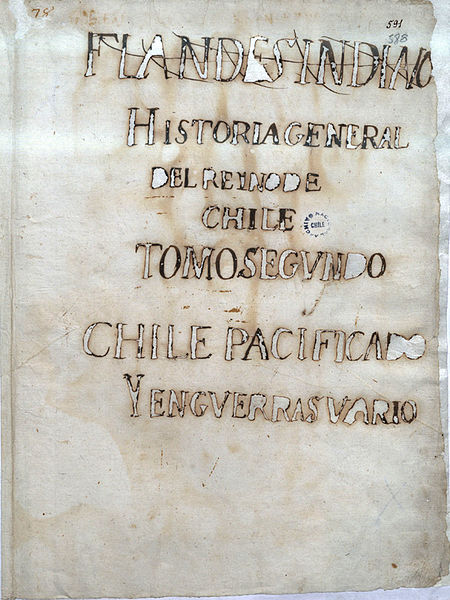 78
591
588
FLANDES INDIANO
HISTORIA GENERAL
DEL REINO DE
CHILE
CHILE
TOMO SEGVNDO
CHILE PACIFICADO
Y EN GVERRAS VARIO